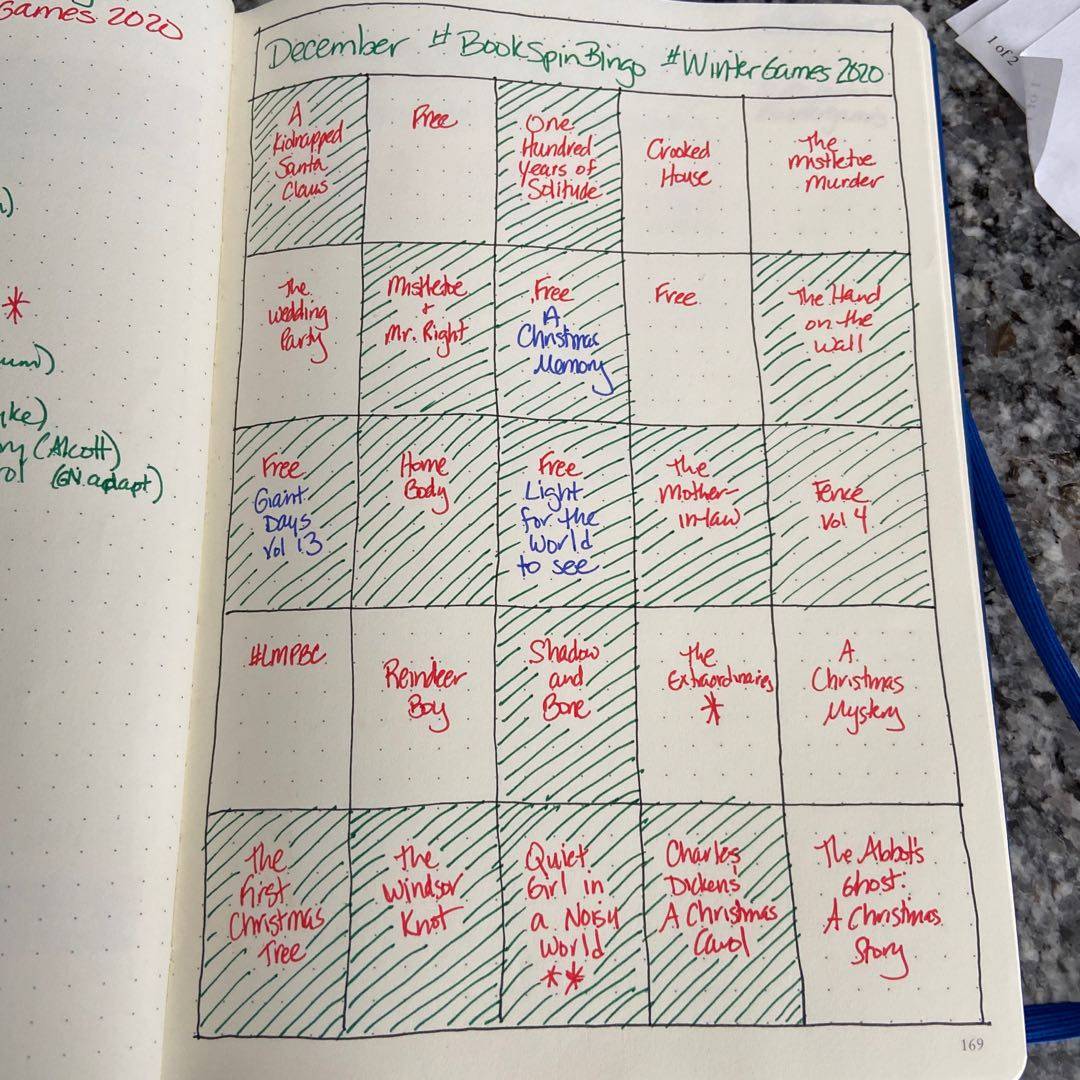 Games 2020
*
(Alcott)
(GN adapt)
December #BookSpinBingo #WinterGames2020
A
Kidnapped
Santa
Claus
Free
One
Hundred
Years of
Solitude
Crooked
House
The
Mistletoe
Murder
The
Wedding
Party
Mistletoe
+
Mr. Right
Free
A
Christmas
Memory
Free
The Hand
on the
Wall
Free
Giant
Days
Vol 13
Home
Body
Free
Light
for the
World
to see
The
Mother-
in-law
Fence
Vol 4
#LMPBC
Reindeer
Boy
Shadow
and
Bone
The
Extraordinaries
*
A
Christmas
Mystery
The
First
Christmas
Tree
The
Windsor
Knot
Quiet
Girl in
a Noisy
World
**
Charles
Dickens's
A Christmas
Carol
The Abbot's
Ghost:
A Christmas
Story
169
1 of 2